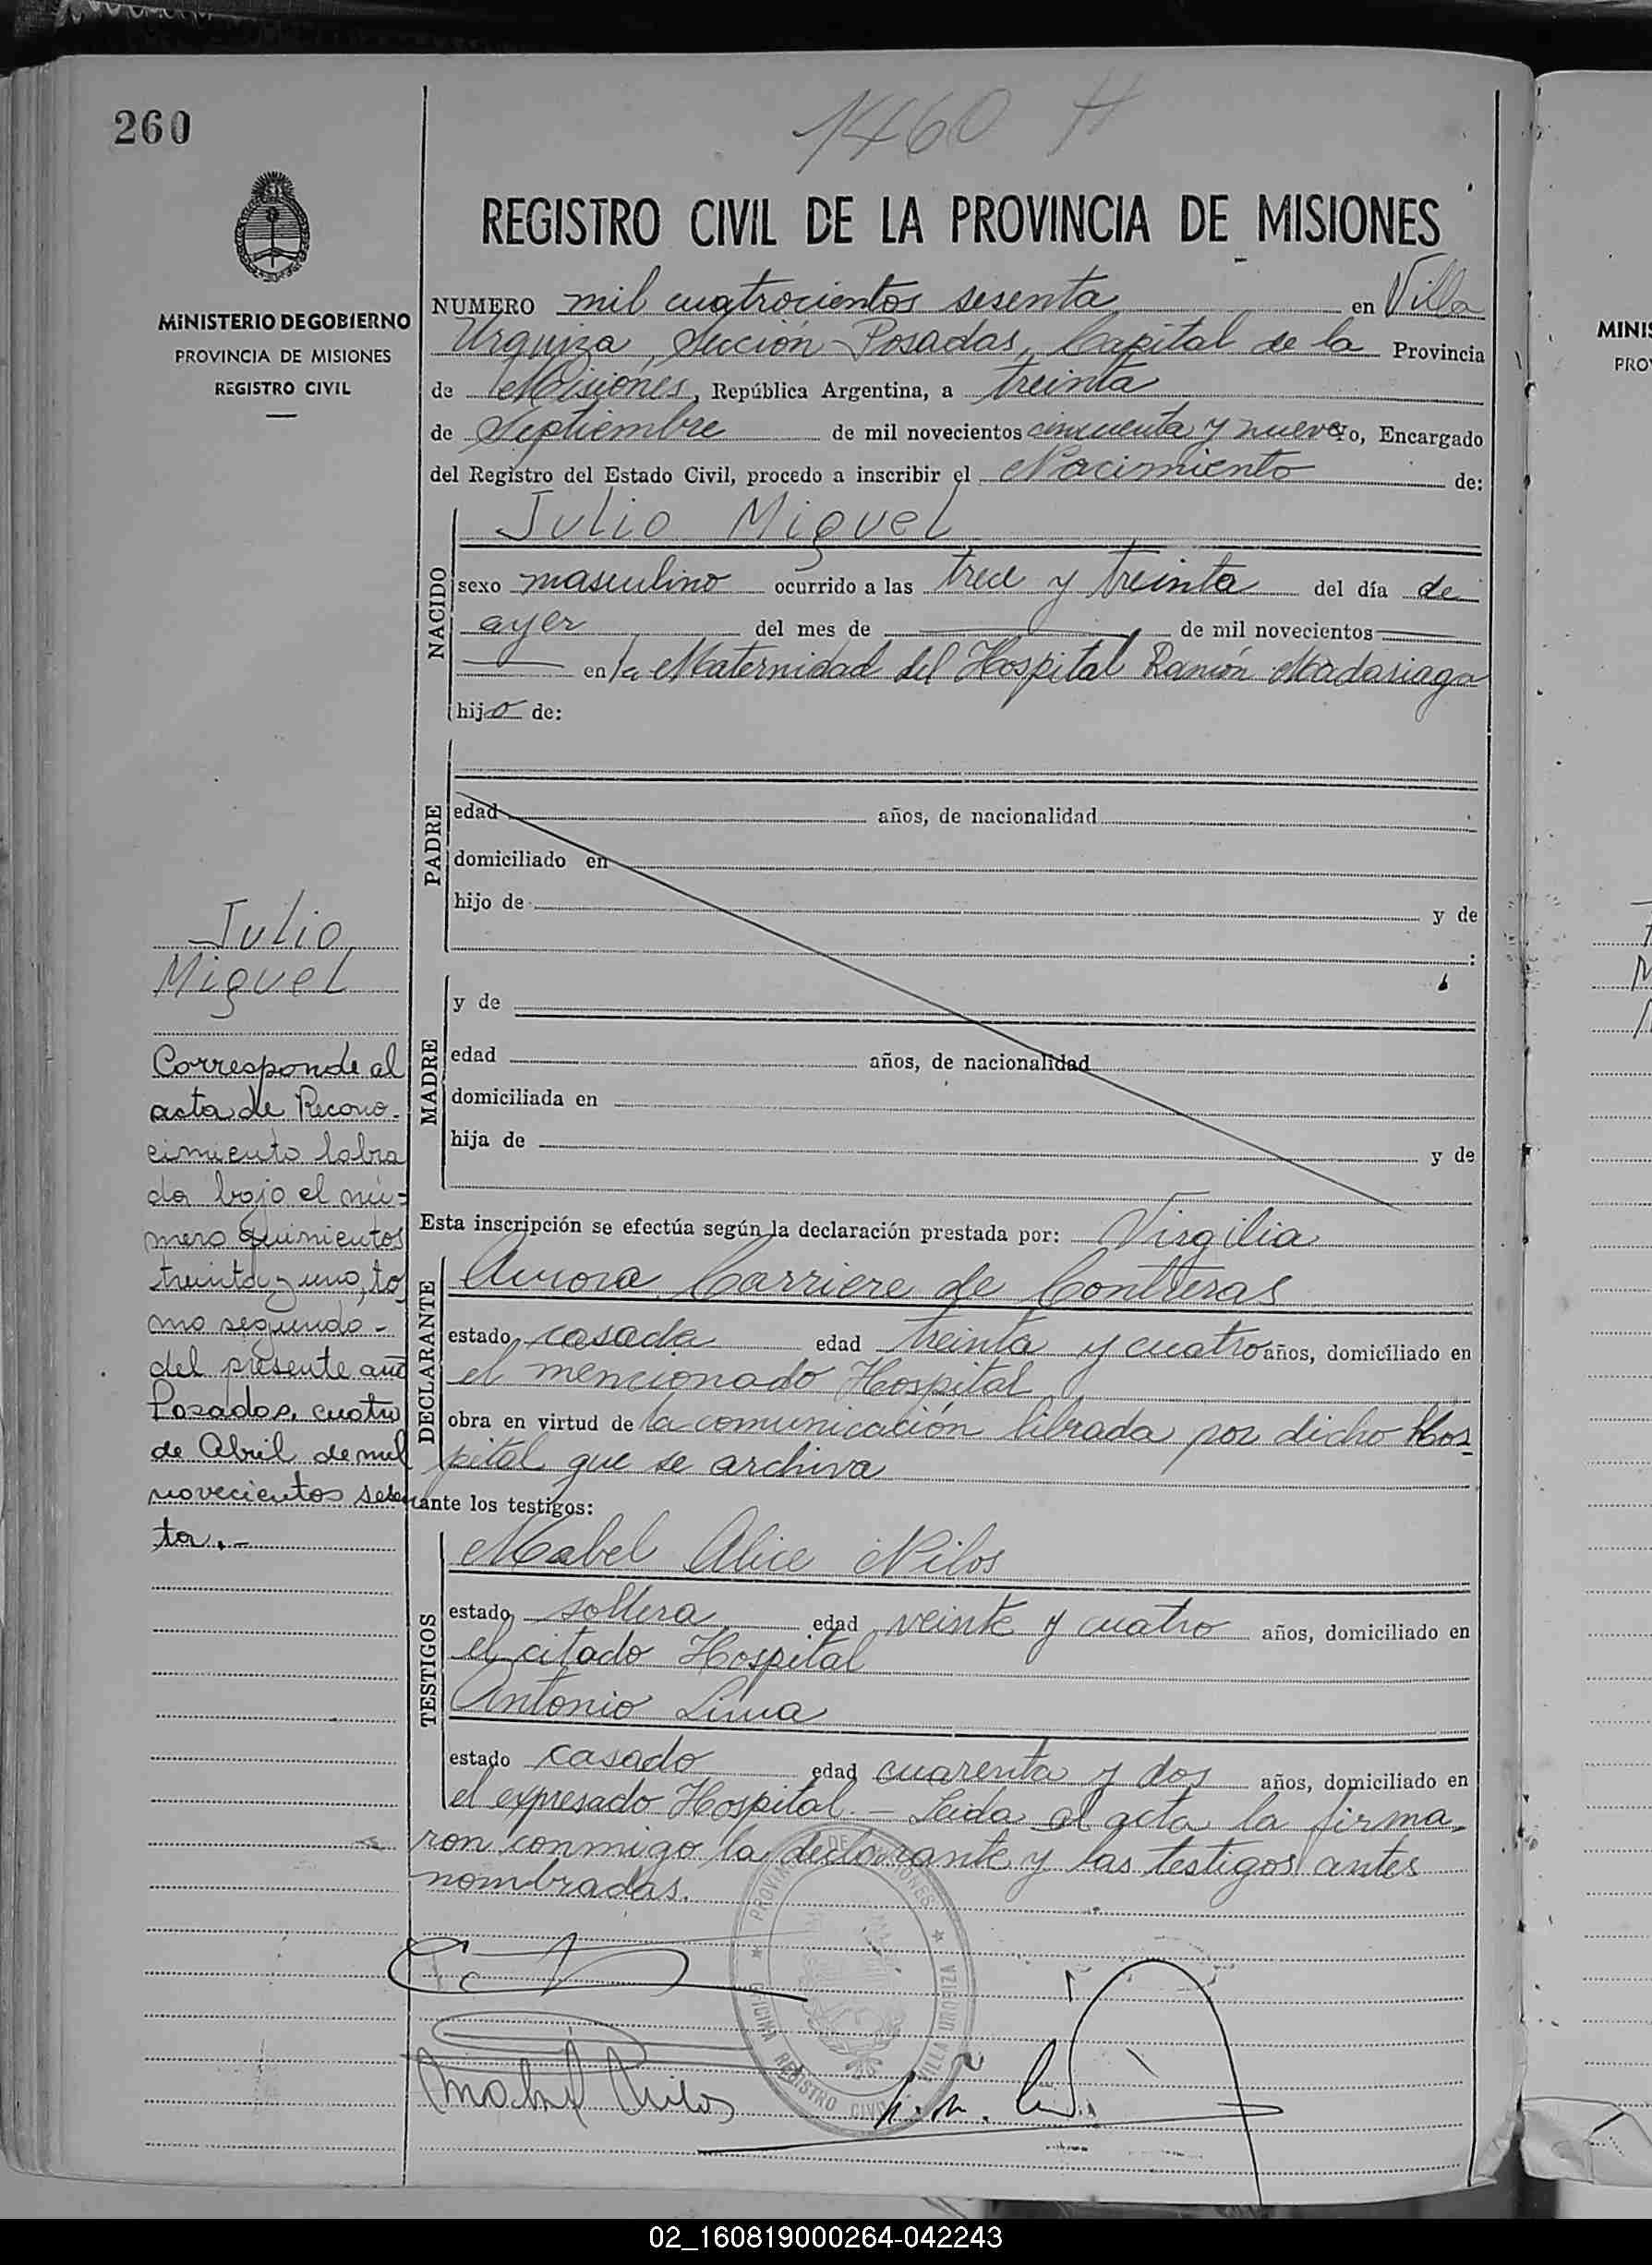 260
1460 H
REGISTRO CIVIL DE LA PROVINCIA DE MISIONES
MINISTERIO DE GOBIERNO
PROVINCIA DE MISIONES
REGISTRO CIVIL
NUMERO mil cuatrocientos sesenta en Villa
Urquiza, Sección Posadas, Capital de la Provincia
de Misiones, República Argentina, a treinta
de Septiembre de mil novecientos cincuenta y nueve yo, Encargado
del Registro del Estado Civil, procedo a inscribir el Nacimiento de:
NACIDO
Julio Miguel
sexo masculino ocurrido a las trece y treinta del día de
ayer del mes de de mil novecientos
en la Maternidad del Hospital Ramón Madariaga
hijo de:
PADRE
edad años, de nacionalidad
domiciliado en
hijo de y de
:
MADRE
y de
edad años, de nacionalidad
domiciliada en
hija de y de
Esta inscripción se efectúa según la declaración prestada por: Virgilia
DECLARANTE
Aurora Carriere de Contreras
estado casada edad treinta y cuatro años, domiciliado en
el mencionado Hospital
obra en virtud de la comunicación librada por dicho Hos
pital que se archiva
ante los testigos:
TESTIGOS
Mabel Alice Nilos
estado soltera edad veinte y cuatro años, domiciliado en
el citado Hospital
Antonio Lima
estado casado edad cuarenta y dos años, domiciliado en
el expresado Hospital. - Leida el acta la firma
ron conmigo la declarante y las testigos antes
nombradas.
Julio
Miguel
Corresponde al
acta de Recono-
cimiento labra
da bajo el nú=
mero quinientos
treinta y uno, to
mo segundo -
del presente año
Posadas, cuatro
de Abril de mil
novecientos sesen
ta.-
PROVINCIA DE MISIONES
OFICINA REGISTRO CIVIL VILLA URQUIZA
Mabel Nilos
MINIS
PRO
02_160819000264-042243